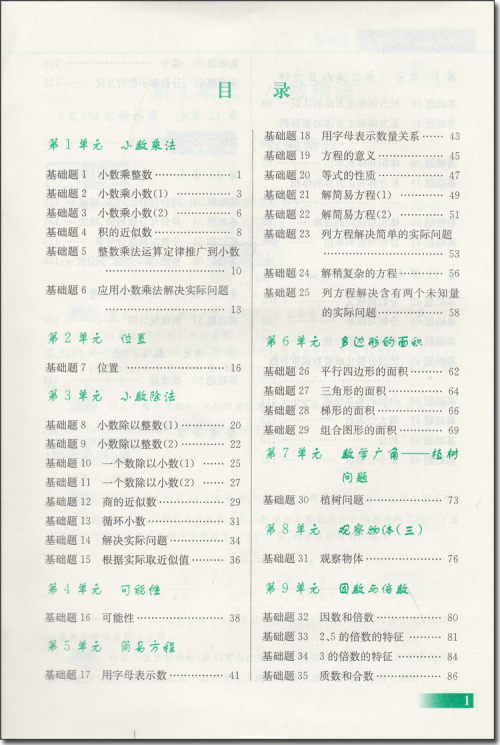 目 录
第1单元 小数乘法
基础题1 小数乘整数 …………… 1
基础题2 小数乘小数(1) ………… 3
基础题3 小数乘小数(2) ………… 6
基础题4 积的近似数 …………… 8
基础题5 整数乘法运算定律推广到小数
…………………… 10
基础题6 应用小数乘法解决实际问题
…………………… 13
第2单元 位置
基础题7 位置 …………………… 16
第3单元 小数除法
基础题8 小数除以整数(1) ……… 20
基础题9 小数除以整数(2) ……… 22
基础题10 一个数除以小数(1) …… 25
基础题11 一个数除以小数(2) …… 27
基础题12 商的近似数 …………… 29
基础题13 循环小数 ……………… 31
基础题14 解决实际问题 ………… 34
基础题15 根据实际取近似值 …… 36
第4单元 可能性
基础题16 可能性 ………………… 38
第5单元 简易方程
基础题17 用字母表示数 ………… 41
基础题18 用字母表示数量关系 …… 43
基础题19 方程的意义 …………… 45
基础题20 等式的性质 …………… 47
基础题21 解简易方程(1) ………… 49
基础题22 解简易方程(2) ………… 51
基础题23 列方程解决简单的实际问题
…………………… 53
基础题24 解稍复杂的方程 ……… 56
基础题25 列方程解决含有两个未知量
的实际问题 …………… 58
第6单元 多边形的面积
基础题26 平行四边形的面积 …… 62
基础题27 三角形的面积 ………… 64
基础题28 梯形的面积 …………… 66
基础题29 组合图形的面积 ……… 69
第7单元 数学广角——植树
问题
基础题30 植树问题 ……………… 73
第8单元 观察物体(三)
基础题31 观察物体 ……………… 76
第9单元 因数与倍数
基础题32 因数和倍数 …………… 80
基础题33 2、5的倍数的特征 …… 81
基础题34 3的倍数的特征 ……… 84
基础题35 质数和合数 …………… 86
1